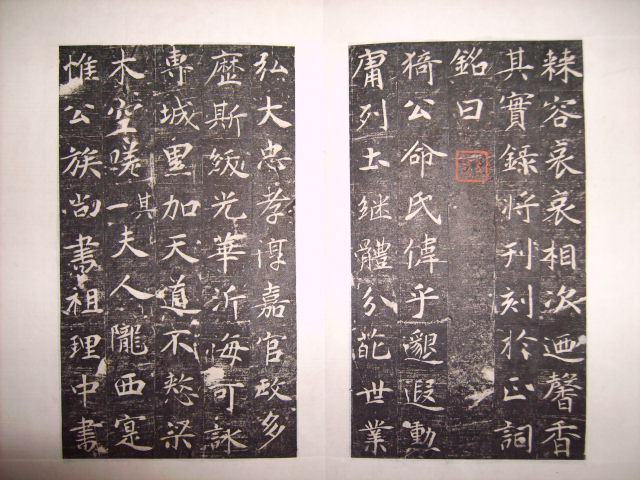 棘容哀哀相次迺馨香
其實錄將刊刻於正詞
銘曰
猗公命氏偉乎邈遐動
庸列土継體分葩世業
弘大忠孝淳嘉官政多
歷斯綴光華沂海可詠
專城里加天道不憗梁
木空嗟其一夫人隴西寔
惟公族尚書祖理中書